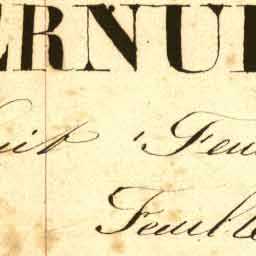 ERNU
uit Feu
Feuille